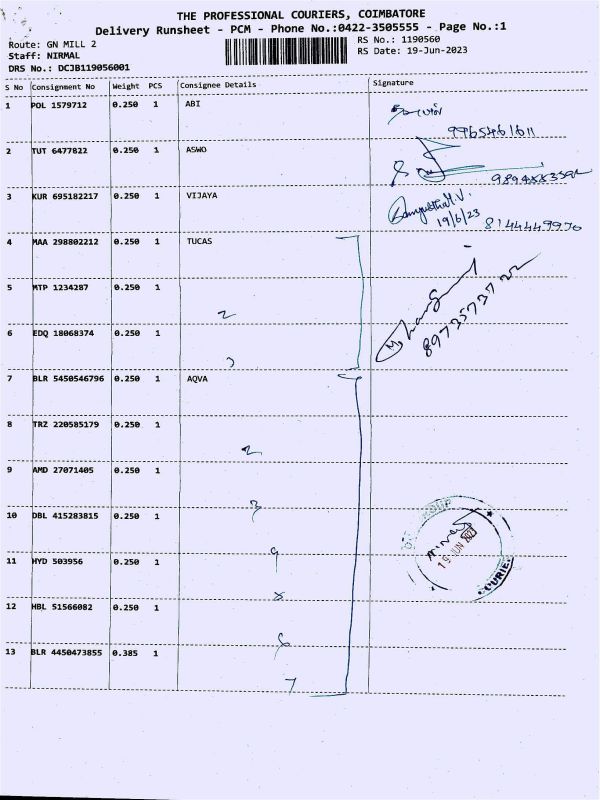 THE PROFESSIONAL COURIERS, COIMBATORE
Delivery Runsheet - PCM - Phone No.:0422-3505555 - Page No.:1
Route: GN MILL 2
RS No.: 1190560
Staff: NIRMAL
RS Date: 19-Jun-2023
DRS No.: DCJB119056001
S No Consignment No Weight PCS Consignee Details Signature
1 POL 1579712 0.250 1 ABI
9965461611
2 TUT 6477822 0.250 1 ASWO
3 KUR 695182217 0.250 1 VIJAYA
19/6/23 8144449976
4 MAA 298802212 0.250 1 TUCAS
5 MTP 1234287 0.250 1
2
6 EDQ 18068374 0.250 1
3
7 BLR 5450546796 0.250 1 AQVA
8 TRZ 220585179 0.250 1
2
9 AMD 27071405 0.250 1
3
10 DBL 415283815 0.250 1
19 JUN 2023
11 HYD 503956 0.250 1
COURIER
12 HBL 51566082 0.250 1
13 BLR 4450473855 0.385 1
7